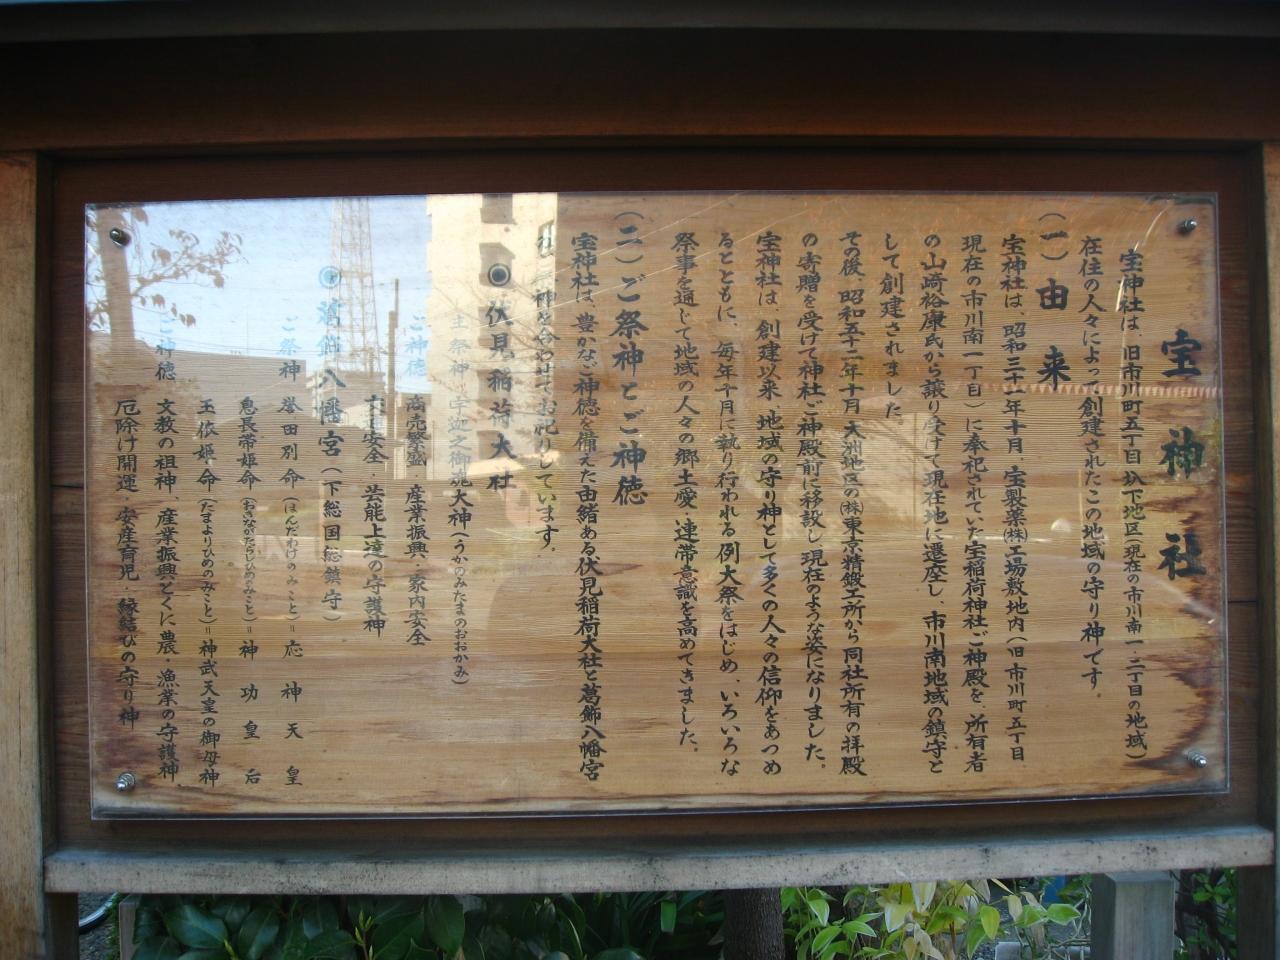 宝神社
宝神社は、旧市川町五丁目圦下地区(現在の市川南一・二丁目の地域)
在住の人々によって創建されたこの地域の守り神です。
(一)由来
宝神社は、昭和三十一年十月、宝製薬㈱工場敷地内(旧市川町五丁目
現在の市川南一丁目)に奉祀されていた宝稲荷神社ご神殿を、所有者
の山﨑裕康氏から譲り受けて現在地に遷座し、市川南地域の鎮守と
して創建されました。
その後、昭和五十二年十月、大洲地区の㈱東京精鍛工所から同社所有の拝殿
の寄贈を受けて神社ご神殿前に移設し、現在のような姿になりました。
宝神社は、創建以来、地域の守り神として多くの人々の信仰をあつめ
るとともに、毎年十月に執り行われる例大祭をはじめ、いろいろな
祭事を通じて地域の人々の郷土愛、連帯意識を高めてきました。
(二)ご祭神とご神徳
宝神社は、豊かなご神徳を備えた由緒ある伏見稲荷大社と葛飾八幡宮
の二神を合わせてお祀りしています。
◉伏見稲荷大社
主祭神 宇迦之御魂大神(うかのみたまのおおかみ)
ご神徳 商売繁盛 産業振興・家内安全
安全 芸能上達の守護神
◉葛飾八幡宮(下総国総鎮守)
ご祭神 誉田別命(ほんだわけのみこと)=応神天皇
息長帯姫命(おきながたらしひめのみこと)=神功皇后
玉依姫命(たまよりひめのみこと)=神武天皇の御母神
ご神徳 文教の祖神、産業振興とくに農・漁業の守護神
厄除け開運 安産育児・縁結びの守り神